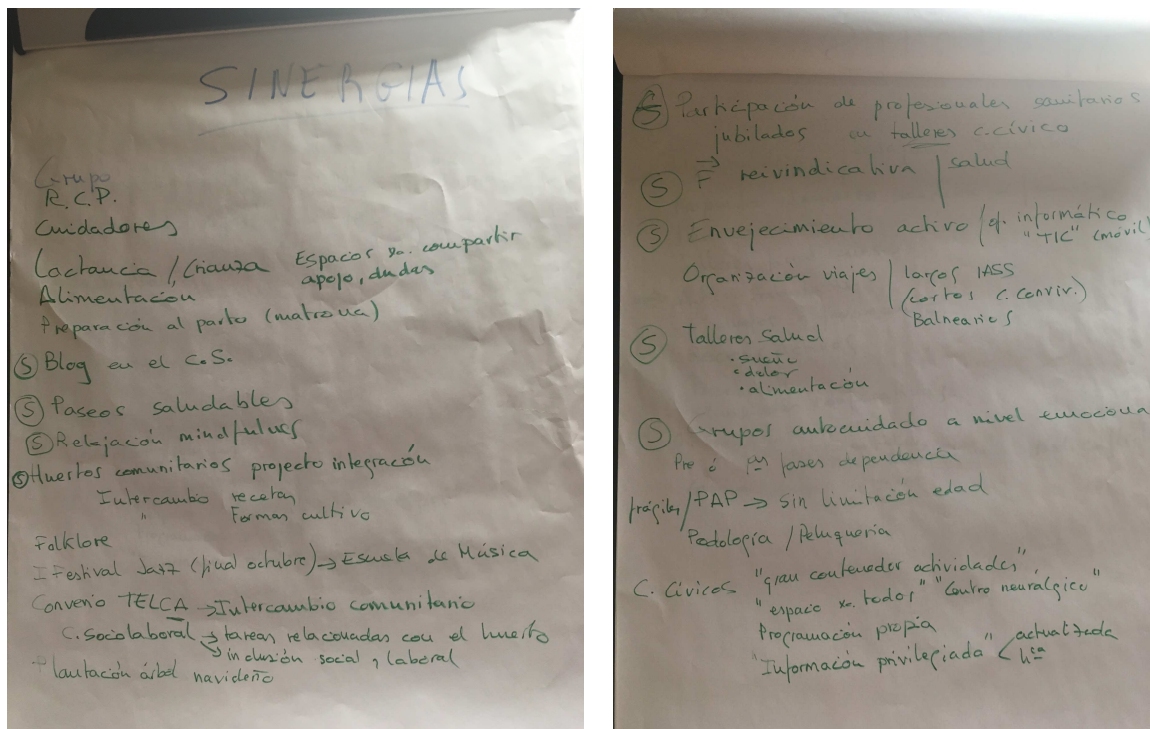 SINERGIAS
Grupo
R.C.P.
Cuidadores
Lactancia / Crianza Espacios xa. compartir
apoyo, dudas
Alimentación
Preparación al parto (matrona)
Ⓢ Blog en el C.S.
Ⓢ Paseos saludables
Ⓢ Relajación mindfulnes
Ⓢ Huertos comunitarios projecto integración
Intercambio recetas
" Formas cultivo
Folklore
I Festival Jazz (final octubre) → Escuela de Música
Convenio TELCA → Intercambio comunitario
C. Sociolaboral → tareas relacionadas con el huerto
→ inclusión social y laboral
Plantación árbol navideño
Ⓢ Participación de profesionales sanitarios
jubilados en talleres c.cívico
Ⓢ F reivindicativa | salud
Ⓢ Envejecimiento activo / informático
"TIC" (móvil)
Organización viajes | largos IASS
(cortos C. Conviv.)
Balnearios
Ⓢ Talleres Salud
• sueño
• dolor
• alimentación
Ⓢ Grupos autocuidado a nivel emociona
Pre fases dependencia
frágiles / PAP → Sin limitación edad
Podología / Peluquería
C. Cívicos "gran contenedor actividades",
"espacio xa. todos" "Centro neurálgico"
Programación propia
"Información privilegiada" < actualizada
hª